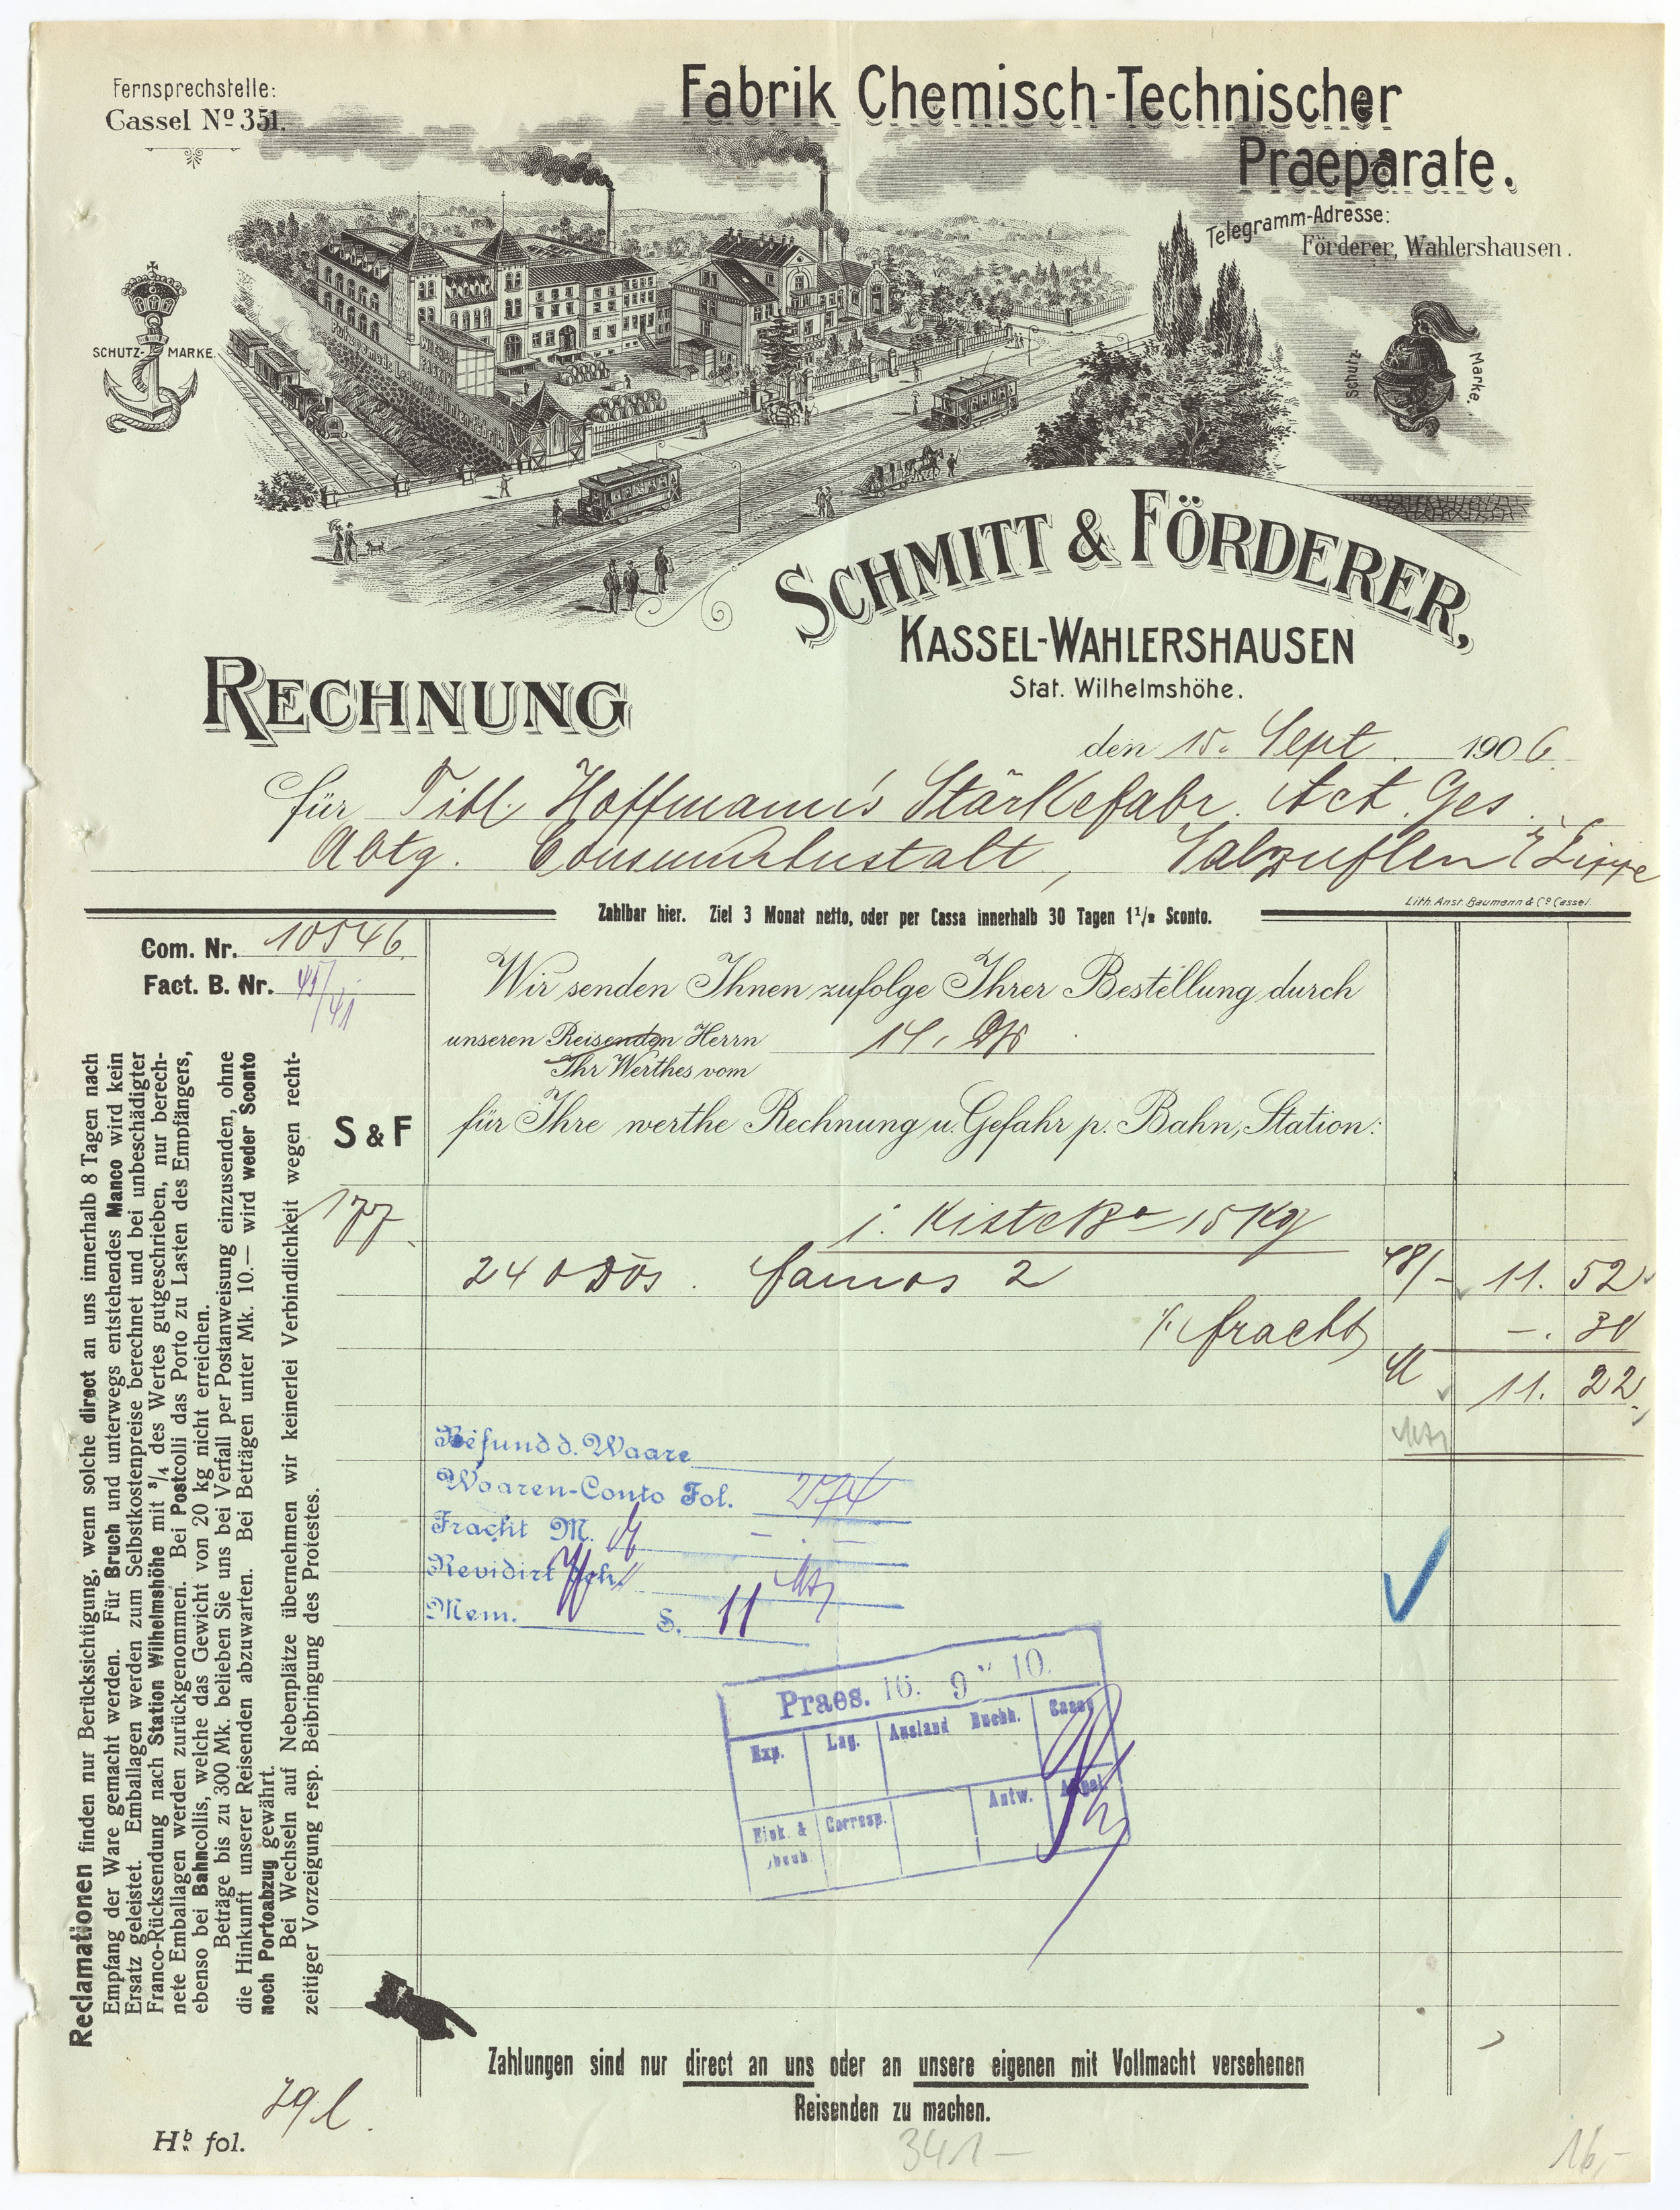 Fernsprechstelle:
Cassel Nº 351.
Fabrik Chemisch-Technischer
Praeparate.
Telegramm-Adresse:
Förderer, Wahlershausen.
SCHUTZ-MARKE.
Schutz Marke.
Putzpomade Lederfett
WICHSE
FABRIK
SCHMITT & FÖRDERER,
KASSEL-WAHLERSHAUSEN
Stat. Wilhelmshöhe.
RECHNUNG
den 15. Sept. 1906
für Titl. Hoffmann's Stärkefabr. Act. Ges.
Abtg. Consumanstalt, Salzuflen i/Lippe
Lith. Anst. Baumann & Cº Cassel.
Zahlbar hier. Ziel 3 Monat netto, oder per Cassa innerhalb 30 Tagen 1½% Sconto.
Com. Nr. 10546.
Fact. B. Nr. 45/41
Wir senden Ihnen zufolge Ihrer Bestellung durch
unseren Reisenden Herrn 14.
Ihr Werthes vom
S & F für Ihre werthe Rechnung u. Gefahr p. Bahn, Station:
177 1. Kiste Bo 15 Kg
240 Dos. Famos 2 48/- 11. 52
% Fracht -. 30
M 11. 22
Befund d. Waare
Waaren-Conto Fol. 274
Fracht M.
Revidirt
Mem. S. 11
Praes. 16. 9 10.
Exp. Lag. Ausland Buchh. Cassa
Eink. & Corresp. Antw.
Reclamationen finden nur Berücksichtigung, wenn solche direct an uns innerhalb 8 Tagen nach
Empfang der Ware gemacht werden. Für Bruch und unterwegs entstehendes Manco wird kein
Ersatz geleistet. Emballagen werden zum Selbstkostenpreise berechnet und bei unbeschädigter
Franco-Rücksendung nach Station Wilhelmshöhe mit ¾ des Wertes gutgeschrieben, nur berech-
nete Emballagen werden zurückgenommen. Bei Postcolli das Porto zu Lasten des Empfängers,
ebenso bei Bahncollis, welche das Gewicht von 20 kg nicht erreichen.
Beträge bis zu 300 Mk. belieben Sie uns bei Verfall per Postanweisung einzusenden, ohne
die Hinkunft unserer Reisenden abzuwarten. Bei Beträgen unter Mk. 10.— wird weder Sconto
noch Portoabzug gewährt.
Bei Wechseln auf Nebenplätze übernehmen wir keinerlei Verbindlichkeit wegen recht-
zeitiger Vorzeigung resp. Beibringung des Protestes.
Zahlungen sind nur direct an uns oder an unsere eigenen mit Vollmacht versehenen
Reisenden zu machen.
Hb. fol. 291.
341-
16,-